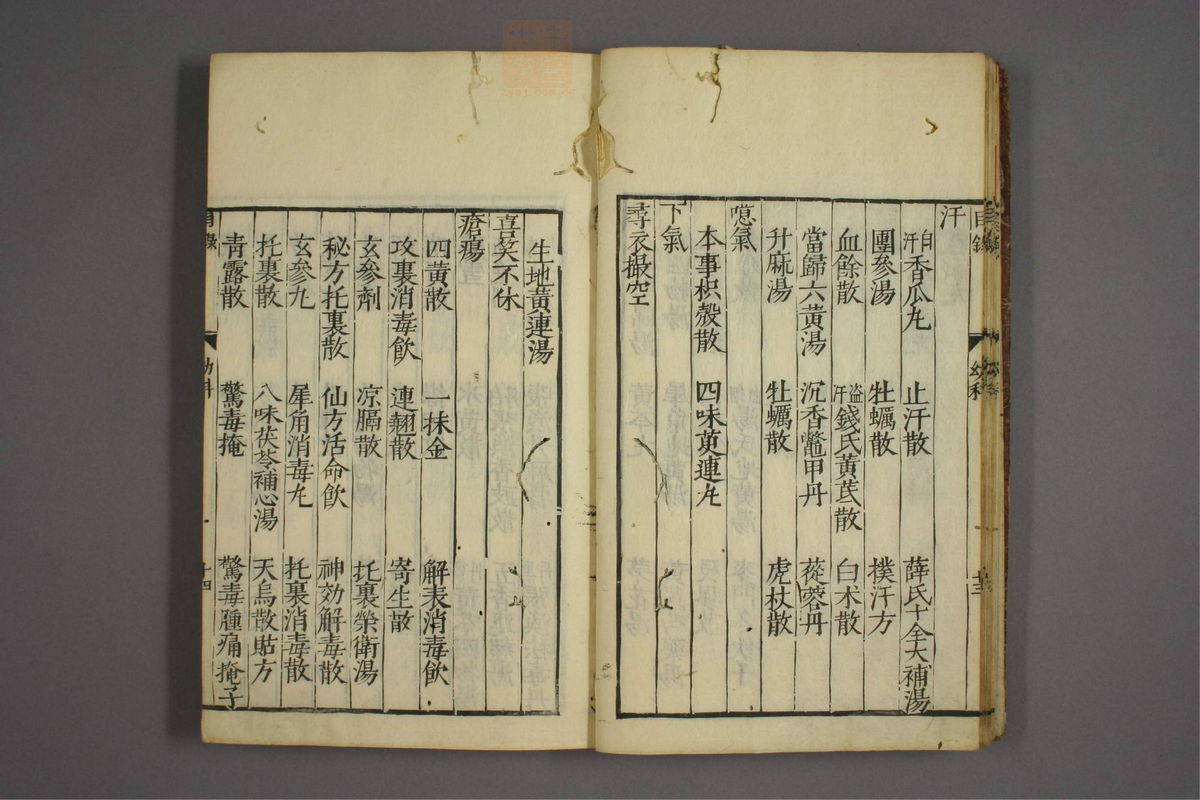 目錄
幼科
汗
自汗香瓜丸 止汗散 薛氏十全大補湯
團參湯 牡蠣散 撲汗方
血餘散 盜汗錢氏黃芪散 白朮散
當歸六黃湯 沉香鱉甲丹 蓯蓉丹
升麻湯 牡蠣散 虎杖散
噫氣
本事枳殼散 四味萸連丸
下氣
尋衣撮空
生地黃連湯
喜笑不休
瘡瘍
四黃散 一抹金 解表消毒飲
攻裏消毒飲 連翹散 寄生散
玄參劑 凉膈散 托裏榮衛湯
秘方托裏散 仙方活命飲 神効解毒散
玄參丸 犀角消毒丸 托裏消毒散
托裏散 八味茯苓補心湯 天烏散貼方
靑露散 驚毒掩 驚毒腫痛掩子
目錄 幼科 十四